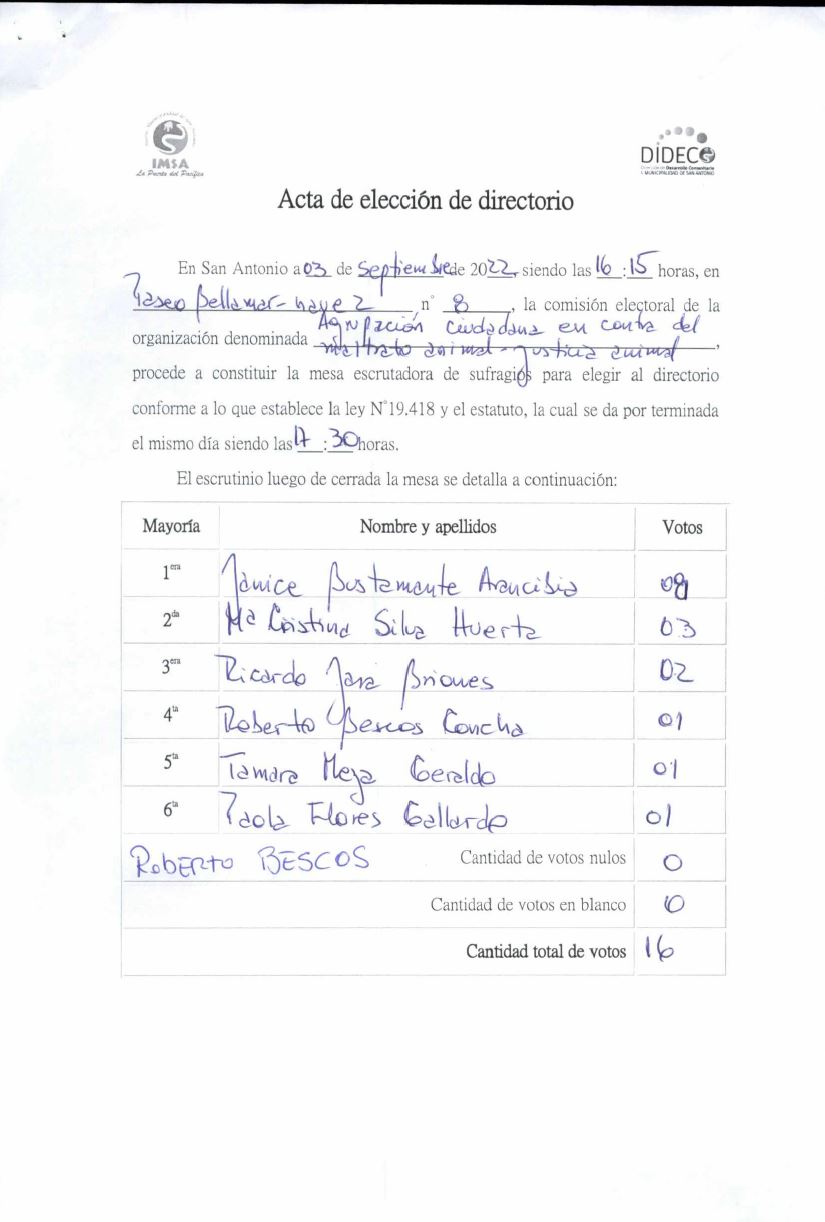 IMSA
La Puerta del Pacífico
DIDECO
Dirección de Desarrollo Comunitario
I. MUNICIPALIDAD DE SAN ANTONIO
Acta de elección de directorio
En San Antonio a 03 de Septiembre de 2022, siendo las 16:15 horas, en
Paseo Bellamar - nave 2, n° 8, la comisión electoral de la
Agrupación ciudadana en contra del
organización denominada maltrato animal - justicia animal,
procede a constituir la mesa escrutadora de sufragios para elegir al directorio
conforme a lo que establece la ley N°19.418 y el estatuto, la cual se da por terminada
el mismo día siendo las 17:30 horas.
El escrutinio luego de cerrada la mesa se detalla a continuación:
Mayoría Nombre y apellidos Votos
1era Janice Bustamante Arancibia 08
2da Ma Cristina Silva Huerta 03
3era Ricardo Jara Briones 02
4ta Roberto Bescos Concha 01
5ta Tamara Meza Geraldo 01
6ta Paola Flores Gallardo 01
ROBERTO BESCOS Cantidad de votos nulos 0
Cantidad de votos en blanco 0
Cantidad total de votos 16